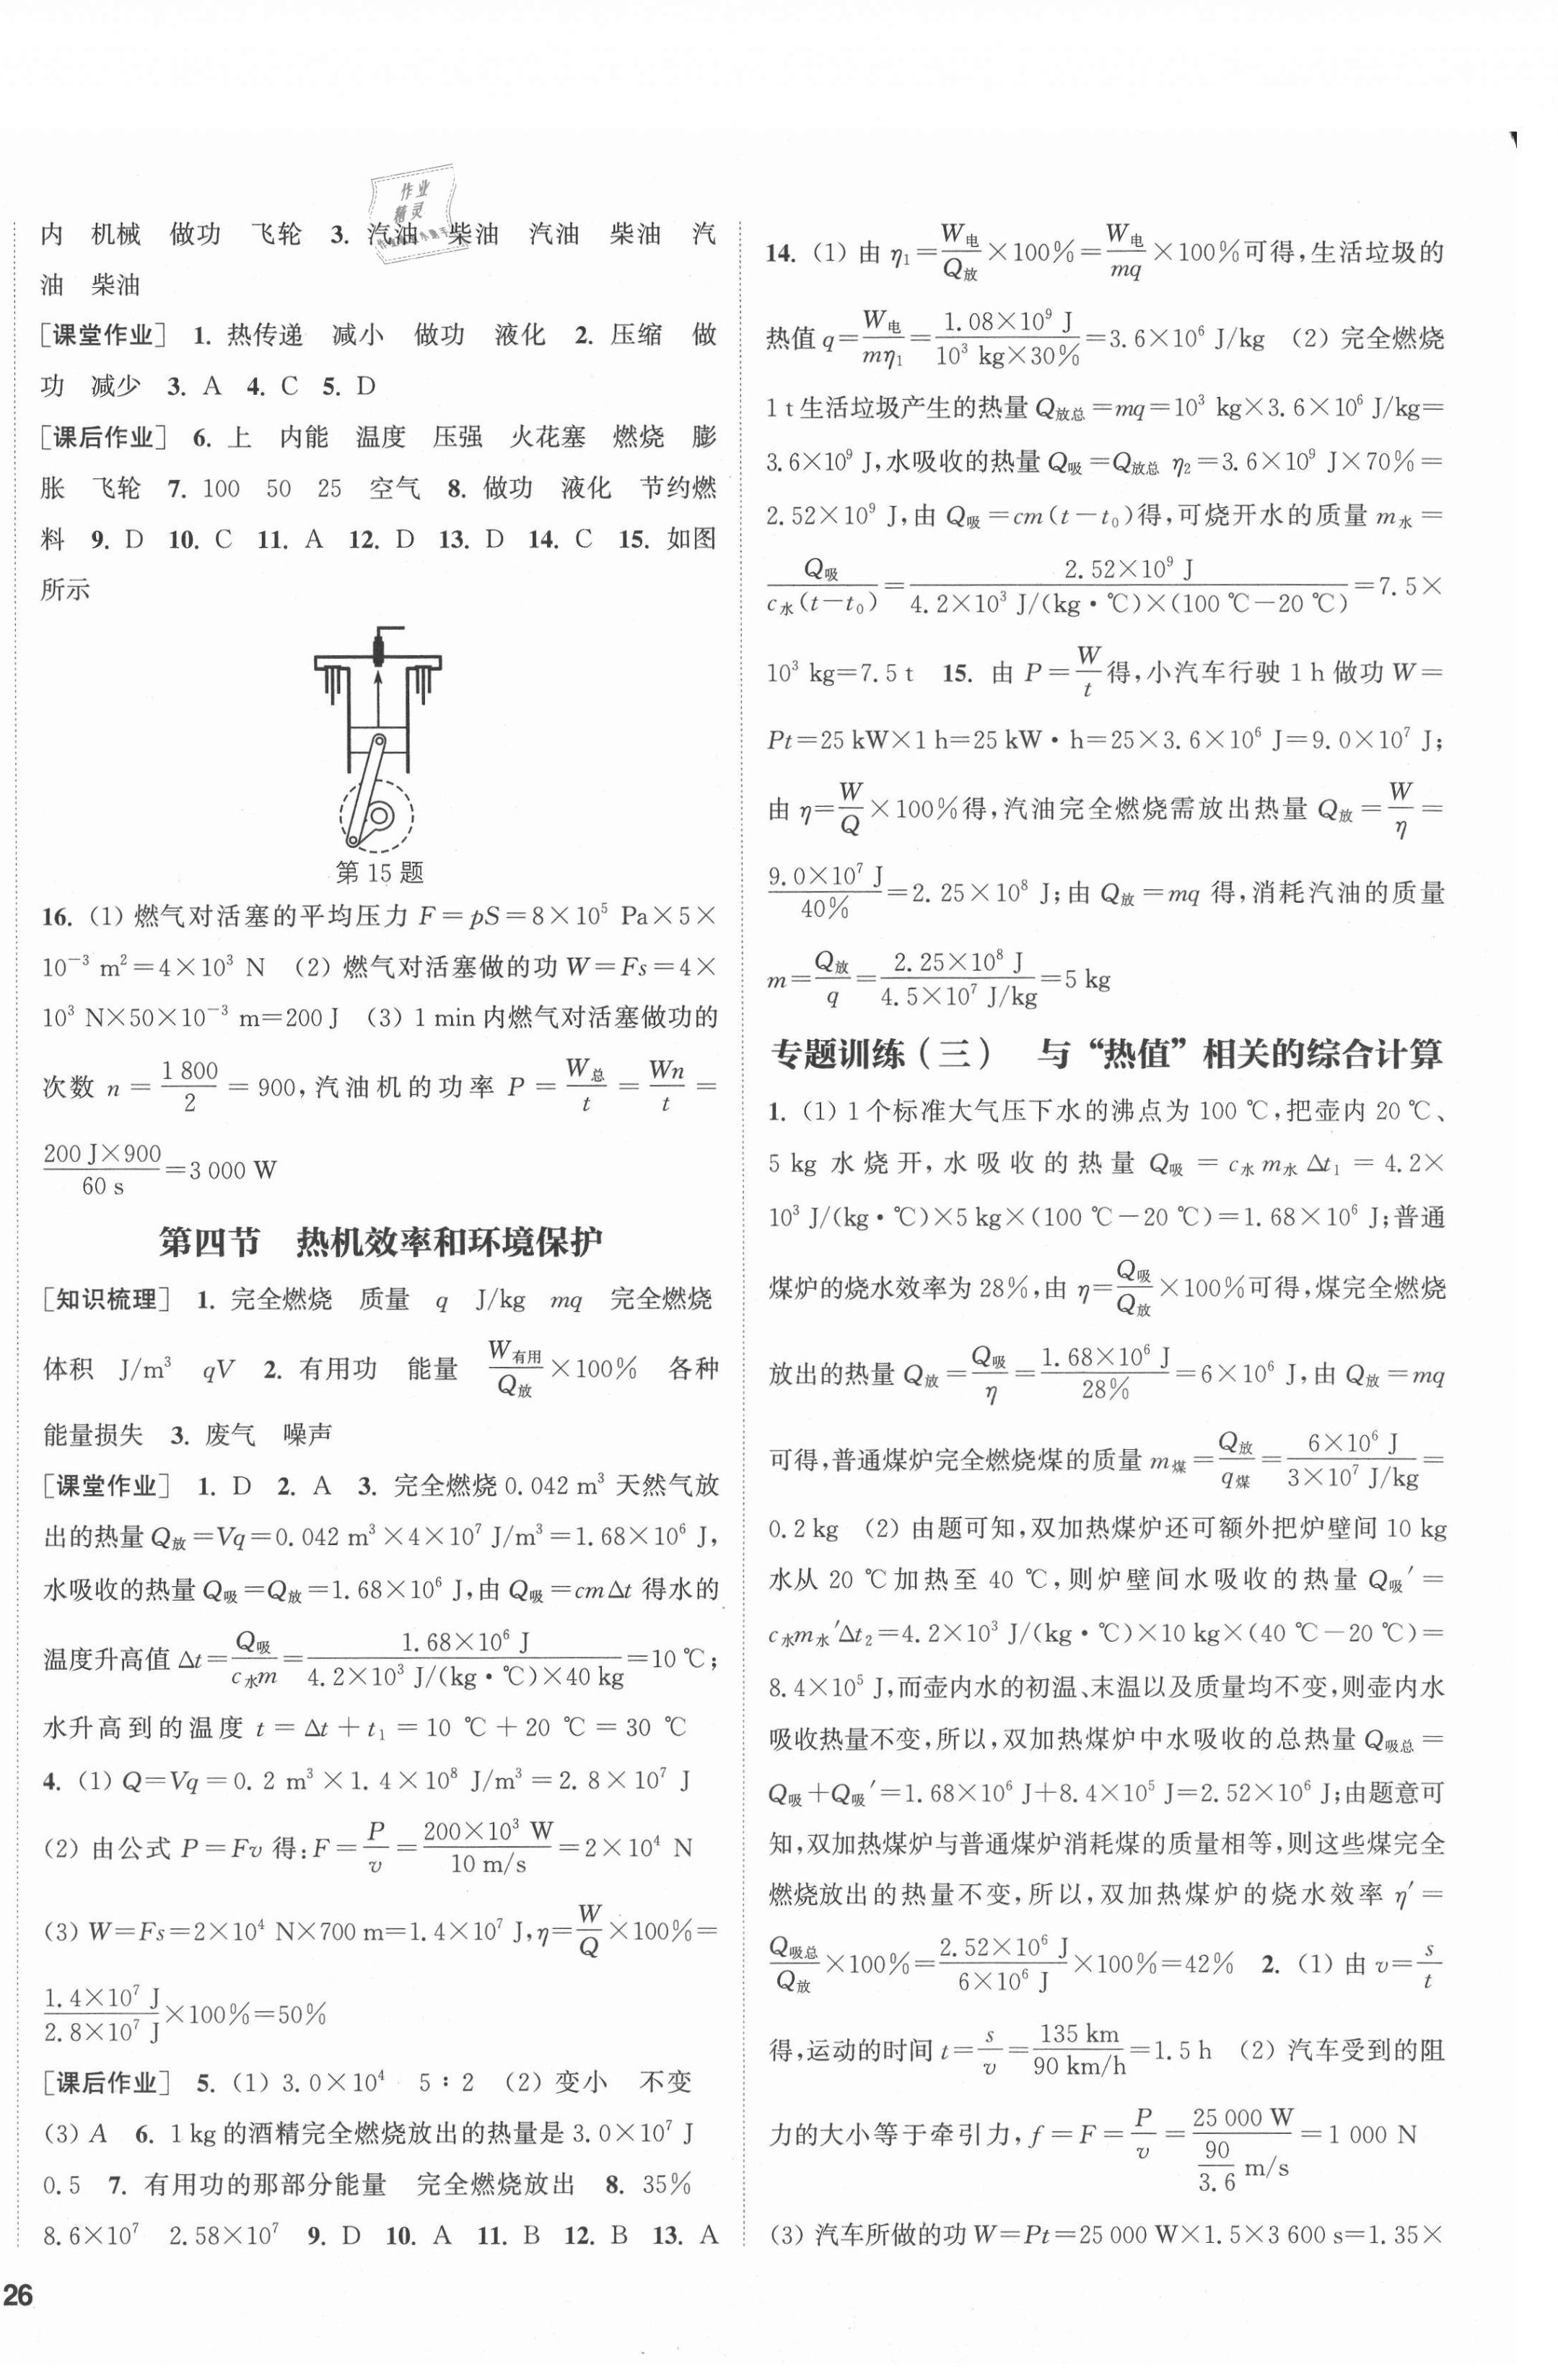 内 机械 做功 飞轮 3. 汽油 柴油 汽油 柴油 汽
油 柴油
[课堂作业] 1. 热传递 减小 做功 液化 2. 压缩 做
功 减少 3. A 4. C 5. D
[课后作业] 6. 上 内能 温度 压强 火花塞 燃烧 膨
胀 飞轮 7. 100 50 25 空气 8. 做功 液化 节约燃
料 9. D 10. C 11. A 12. D 13. D 14. C 15. 如图
所示
第15题
16. (1) 燃气对活塞的平均压力 F=pS=8×10⁵ Pa×5×
10⁻³ m²=4×10³ N (2) 燃气对活塞做的功 W=Fs=4×
10³ N×50×10⁻³ m=200 J (3) 1 min内燃气对活塞做功的
次数 n=1 800/2=900,汽油机的功率 P=W总/t=Wn/t=
200 J×900/60 s=3 000 W
第四节 热机效率和环境保护
[知识梳理] 1. 完全燃烧 质量 q J/kg mq 完全燃烧
体积 J/m³ qV 2. 有用功 能量 W有用/Q放×100% 各种
能量损失 3. 废气 噪声
[课堂作业] 1. D 2. A 3. 完全燃烧0.042 m³ 天然气放
出的热量 Q放=Vq=0.042 m³×4×10⁷ J/m³=1.68×10⁶ J,
水吸收的热量 Q吸=Q放=1.68×10⁶ J,由 Q吸=cmΔt 得水的
温度升高值 Δt=Q吸/c水m=1.68×10⁶ J/4.2×10³ J/(kg·℃)×40 kg=10 ℃;
水升高到的温度 t=Δt+t₁=10 ℃+20 ℃=30 ℃
4. (1) Q=Vq=0.2 m³×1.4×10⁸ J/m³=2.8×10⁷ J
(2) 由公式 P=Fv 得:F=P/v=200×10³ W/10 m/s=2×10⁴ N
(3) W=Fs=2×10⁴ N×700 m=1.4×10⁷ J,η=W/Q×100%=
1.4×10⁷ J/2.8×10⁷ J×100%=50%
[课后作业] 5. (1) 3.0×10⁴ 5∶2 (2) 变小 不变
(3) A 6. 1 kg的酒精完全燃烧放出的热量是3.0×10⁷ J
0.5 7. 有用功的那部分能量 完全燃烧放出 8. 35%
8.6×10⁷ 2.58×10⁷ 9. D 10. A 11. B 12. B 13. A
26
14. (1) 由 η₁=W电/Q放×100%=W电/mq×100%可得,生活垃圾的
热值 q=W电/mη₁=1.08×10⁹ J/10³ kg×30%=3.6×10⁶ J/kg (2) 完全燃烧
1 t生活垃圾产生的热量 Q放总=mq=10³ kg×3.6×10⁶ J/kg=
3.6×10⁹ J,水吸收的热量 Q吸=Q放总 η₂=3.6×10⁹ J×70%=
2.52×10⁹ J,由 Q吸=cm(t-t₀)得,可烧开水的质量 m水=
Q吸/c水(t-t₀)=2.52×10⁹ J/4.2×10³ J/(kg·℃)×(100 ℃-20 ℃)=7.5×
10³ kg=7.5 t 15. 由 P=W/t得,小汽车行驶1 h做功 W=
Pt=25 kW×1 h=25 kW·h=25×3.6×10⁶ J=9.0×10⁷ J;
由 η=W/Q×100%得,汽油完全燃烧需放出热量 Q放=W/η=
9.0×10⁷ J/40%=2.25×10⁸ J;由 Q放=mq 得,消耗汽油的质量
m=Q放/q=2.25×10⁸ J/4.5×10⁷ J/kg=5 kg
专题训练(三) 与“热值”相关的综合计算
1. (1) 1个标准大气压下水的沸点为100 ℃,把壶内20 ℃、
5 kg 水烧开,水吸收的热量 Q吸=c水m水Δt₁=4.2×
10³ J/(kg·℃)×5 kg×(100 ℃-20 ℃)=1.68×10⁶ J;普通
煤炉的烧水效率为28%,由 η=Q吸/Q放×100%可得,煤完全燃烧
放出的热量 Q放=Q吸/η=1.68×10⁶ J/28%=6×10⁶ J,由 Q放=mq
可得,普通煤炉完全燃烧煤的质量 m煤=Q放/q煤=6×10⁶ J/3×10⁷ J/kg=
0.2 kg (2) 由题可知,双加热煤炉还可额外把炉壁间10 kg
水从20 ℃加热至40 ℃,则炉壁间水吸收的热量 Q吸′=
c水m水′Δt₂=4.2×10³ J/(kg·℃)×10 kg×(40 ℃-20 ℃)=
8.4×10⁵ J,而壶内水的初温、末温以及质量均不变,则壶内水
吸收热量不变,所以,双加热煤炉中水吸收的总热量 Q吸总=
Q吸+Q吸′=1.68×10⁶ J+8.4×10⁵ J=2.52×10⁶ J;由题意可
知,双加热煤炉与普通煤炉消耗煤的质量相等,则这些煤完全
燃烧放出的热量不变,所以,双加热煤炉的烧水效率 η′=
Q吸总/Q放×100%=2.52×10⁶ J/6×10⁶ J×100%=42% 2. (1) 由 v=s/t
得,运动的时间 t=s/v=135 km/90 km/h=1.5 h (2) 汽车受到的阻
力的大小等于牵引力,f=F=P/v=25 000 W/(90/3.6 m/s)=1 000 N
(3) 汽车所做的功 W=Pt=25 000 W×1.5×3 600 s=1.35×
作业
精灵